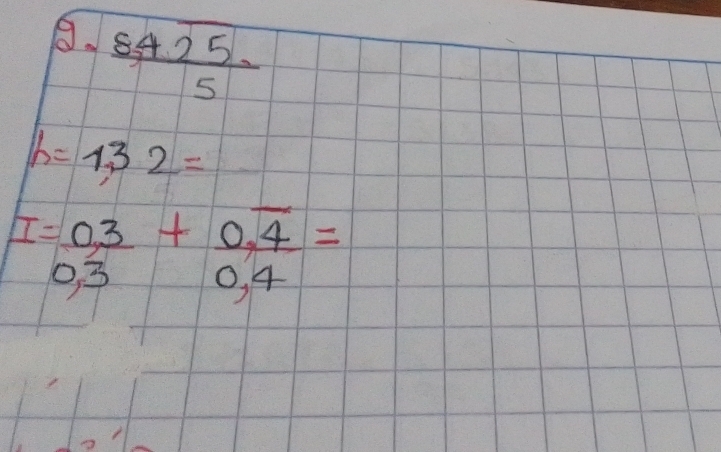 g. 8,42̅5̅.
5
h= 1,32 =
I= 0,3 + 0,4̅ =
0,3 0,4